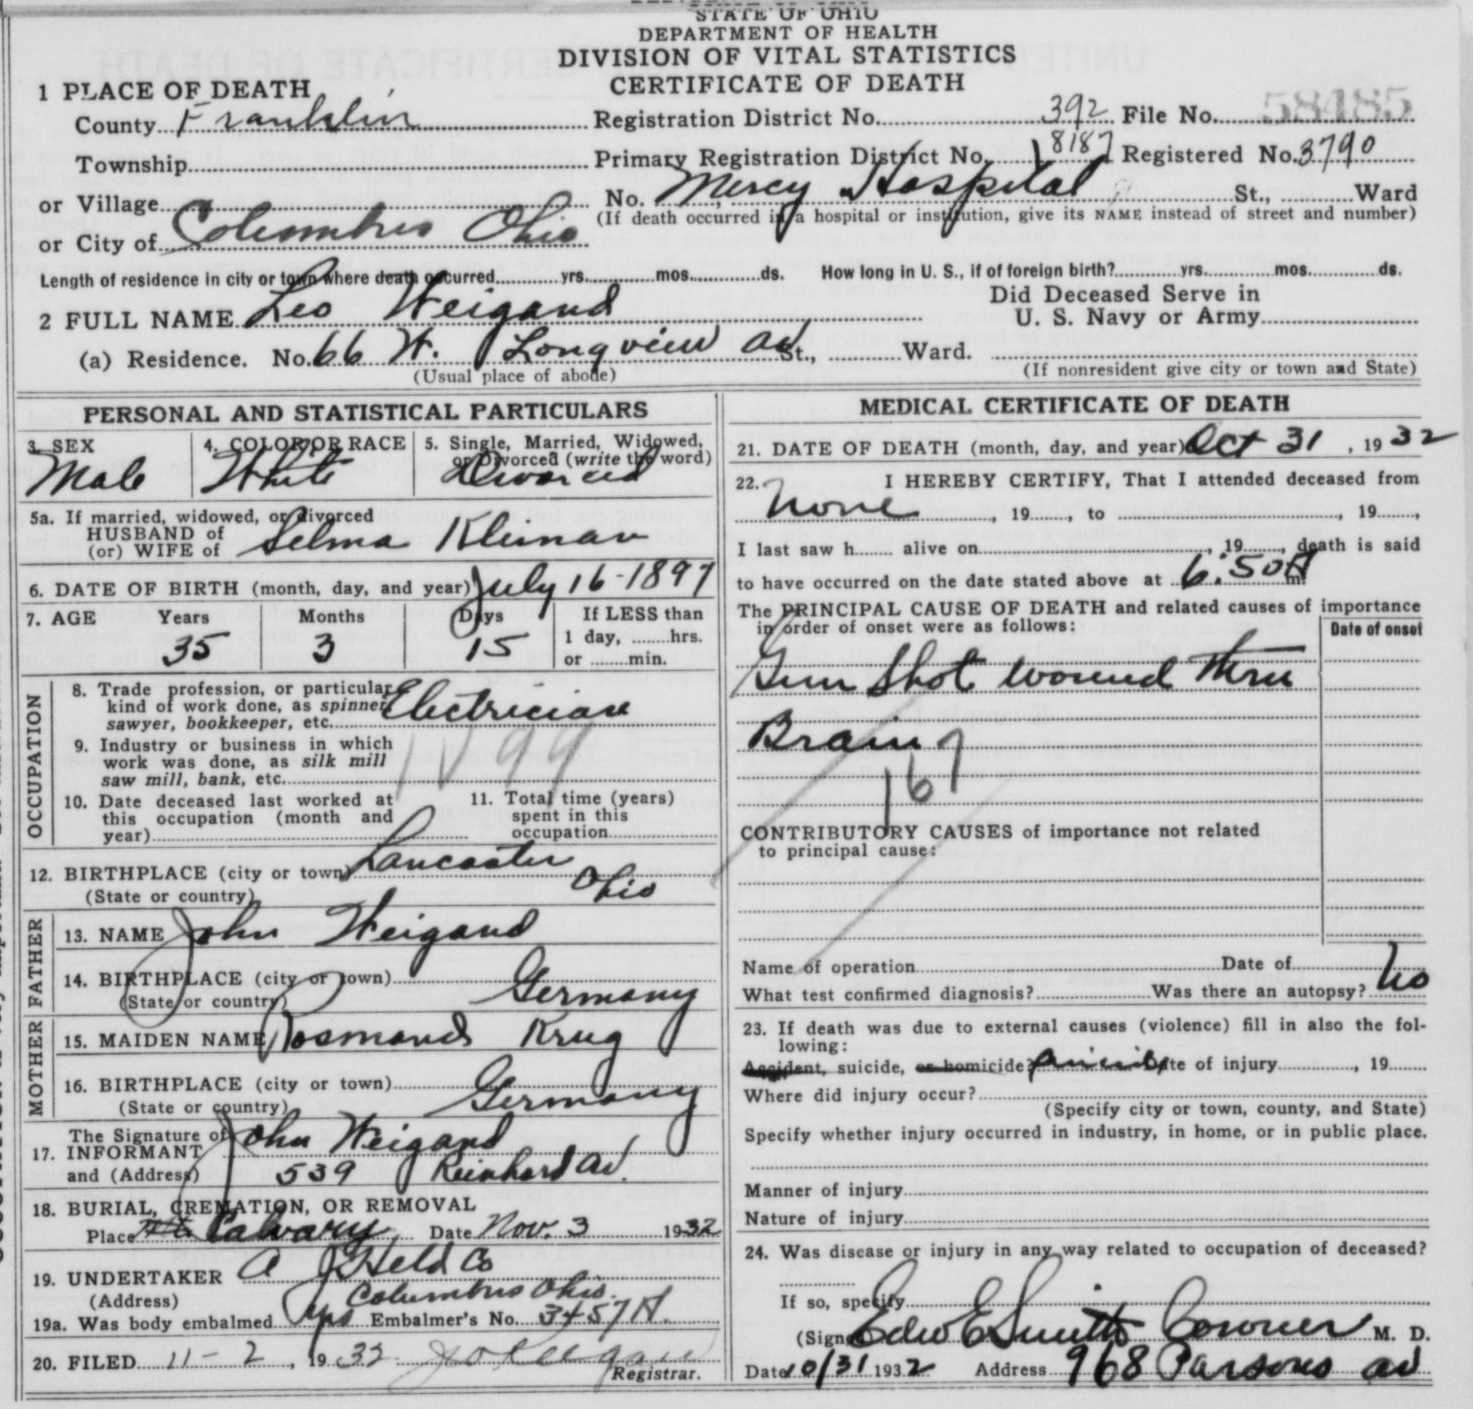 STATE OF OHIO
DEPARTMENT OF HEALTH
DIVISION OF VITAL STATISTICS
CERTIFICATE OF DEATH
1 PLACE OF DEATH
County Franklin Registration District No. 392 File No. 58485
Township Primary Registration District No. 8187 Registered No. 3790
or Village No. Mercy Hospital St., Ward
(If death occurred in a hospital or institution, give its NAME instead of street and number)
or City of Columbus Ohio
Length of residence in city or town where death occurred yrs. mos. ds. How long in U. S., if of foreign birth? yrs. mos. ds.
2 FULL NAME Leo Weigand Did Deceased Serve in U. S. Navy or Army
(a) Residence. No. 66 W. Longview Av St., Ward.
(Usual place of abode) (If nonresident give city or town and State)
PERSONAL AND STATISTICAL PARTICULARS
3. SEX Male
4. COLOR OR RACE White
5. Single, Married, Widowed, or Divorced (write the word) Divorced
5a. If married, widowed, or divorced
HUSBAND of
(or) WIFE of Selma
6. DATE OF BIRTH (month, day, and year) July 16-1897
7. AGE Years Months Days If LESS than
35 3 15 1 day, hrs.
or min.
OCCUPATION
8. Trade profession, or particular
kind of work done, as spinner, Electrician
sawyer, bookkeeper, etc.
9. Industry or business in which
work was done, as silk mill
saw mill, bank, etc.
10. Date deceased last worked at
this occupation (month and
year)
11. Total time (years)
spent in this
occupation
12. BIRTHPLACE (city or town) Lancaster
(State or country) Ohio
FATHER
13. NAME John Weigand
14. BIRTHPLACE (city or town)
(State or country) Germany
MOTHER
15. MAIDEN NAME Rosmond Krug
16. BIRTHPLACE (city or town)
(State or country) Germany
The Signature of
17. INFORMANT John Weigand
and (Address) 539 Reinhard Av.
18. BURIAL, CREMATION, OR REMOVAL
Place Calvary Date Nov. 3 1932
19. UNDERTAKER A J Held Co
(Address) Columbus Ohio.
19a. Was body embalmed yes Embalmer's No. 3457A.
20. FILED 11-2, 1932
Registrar.
MEDICAL CERTIFICATE OF DEATH
21. DATE OF DEATH (month, day, and year) Oct 31, 1932
22. I HEREBY CERTIFY, That I attended deceased from
None, 19, to , 19,
I last saw h alive on , 19, death is said
to have occurred on the date stated above at 6:50A m.
The PRINCIPAL CAUSE OF DEATH and related causes of importance
in order of onset were as follows: Date of onset
Gun Shot wound thru
Brain
167
CONTRIBUTORY CAUSES of importance not related
to principal cause:
Name of operation Date of
What test confirmed diagnosis? Was there an autopsy? no
23. If death was due to external causes (violence) fill in also the fol-
lowing:
Accident, suicide, or homicide? suicide Date of injury , 19
Where did injury occur?
(Specify city or town, county, and State)
Specify whether injury occurred in industry, in home, or in public place.
Manner of injury
Nature of injury
24. Was disease or injury in any way related to occupation of deceased?
If so, specify
(Signed) Edw E Smith Coroner M. D.
Date 10/31 1932 Address 968 Parsons av